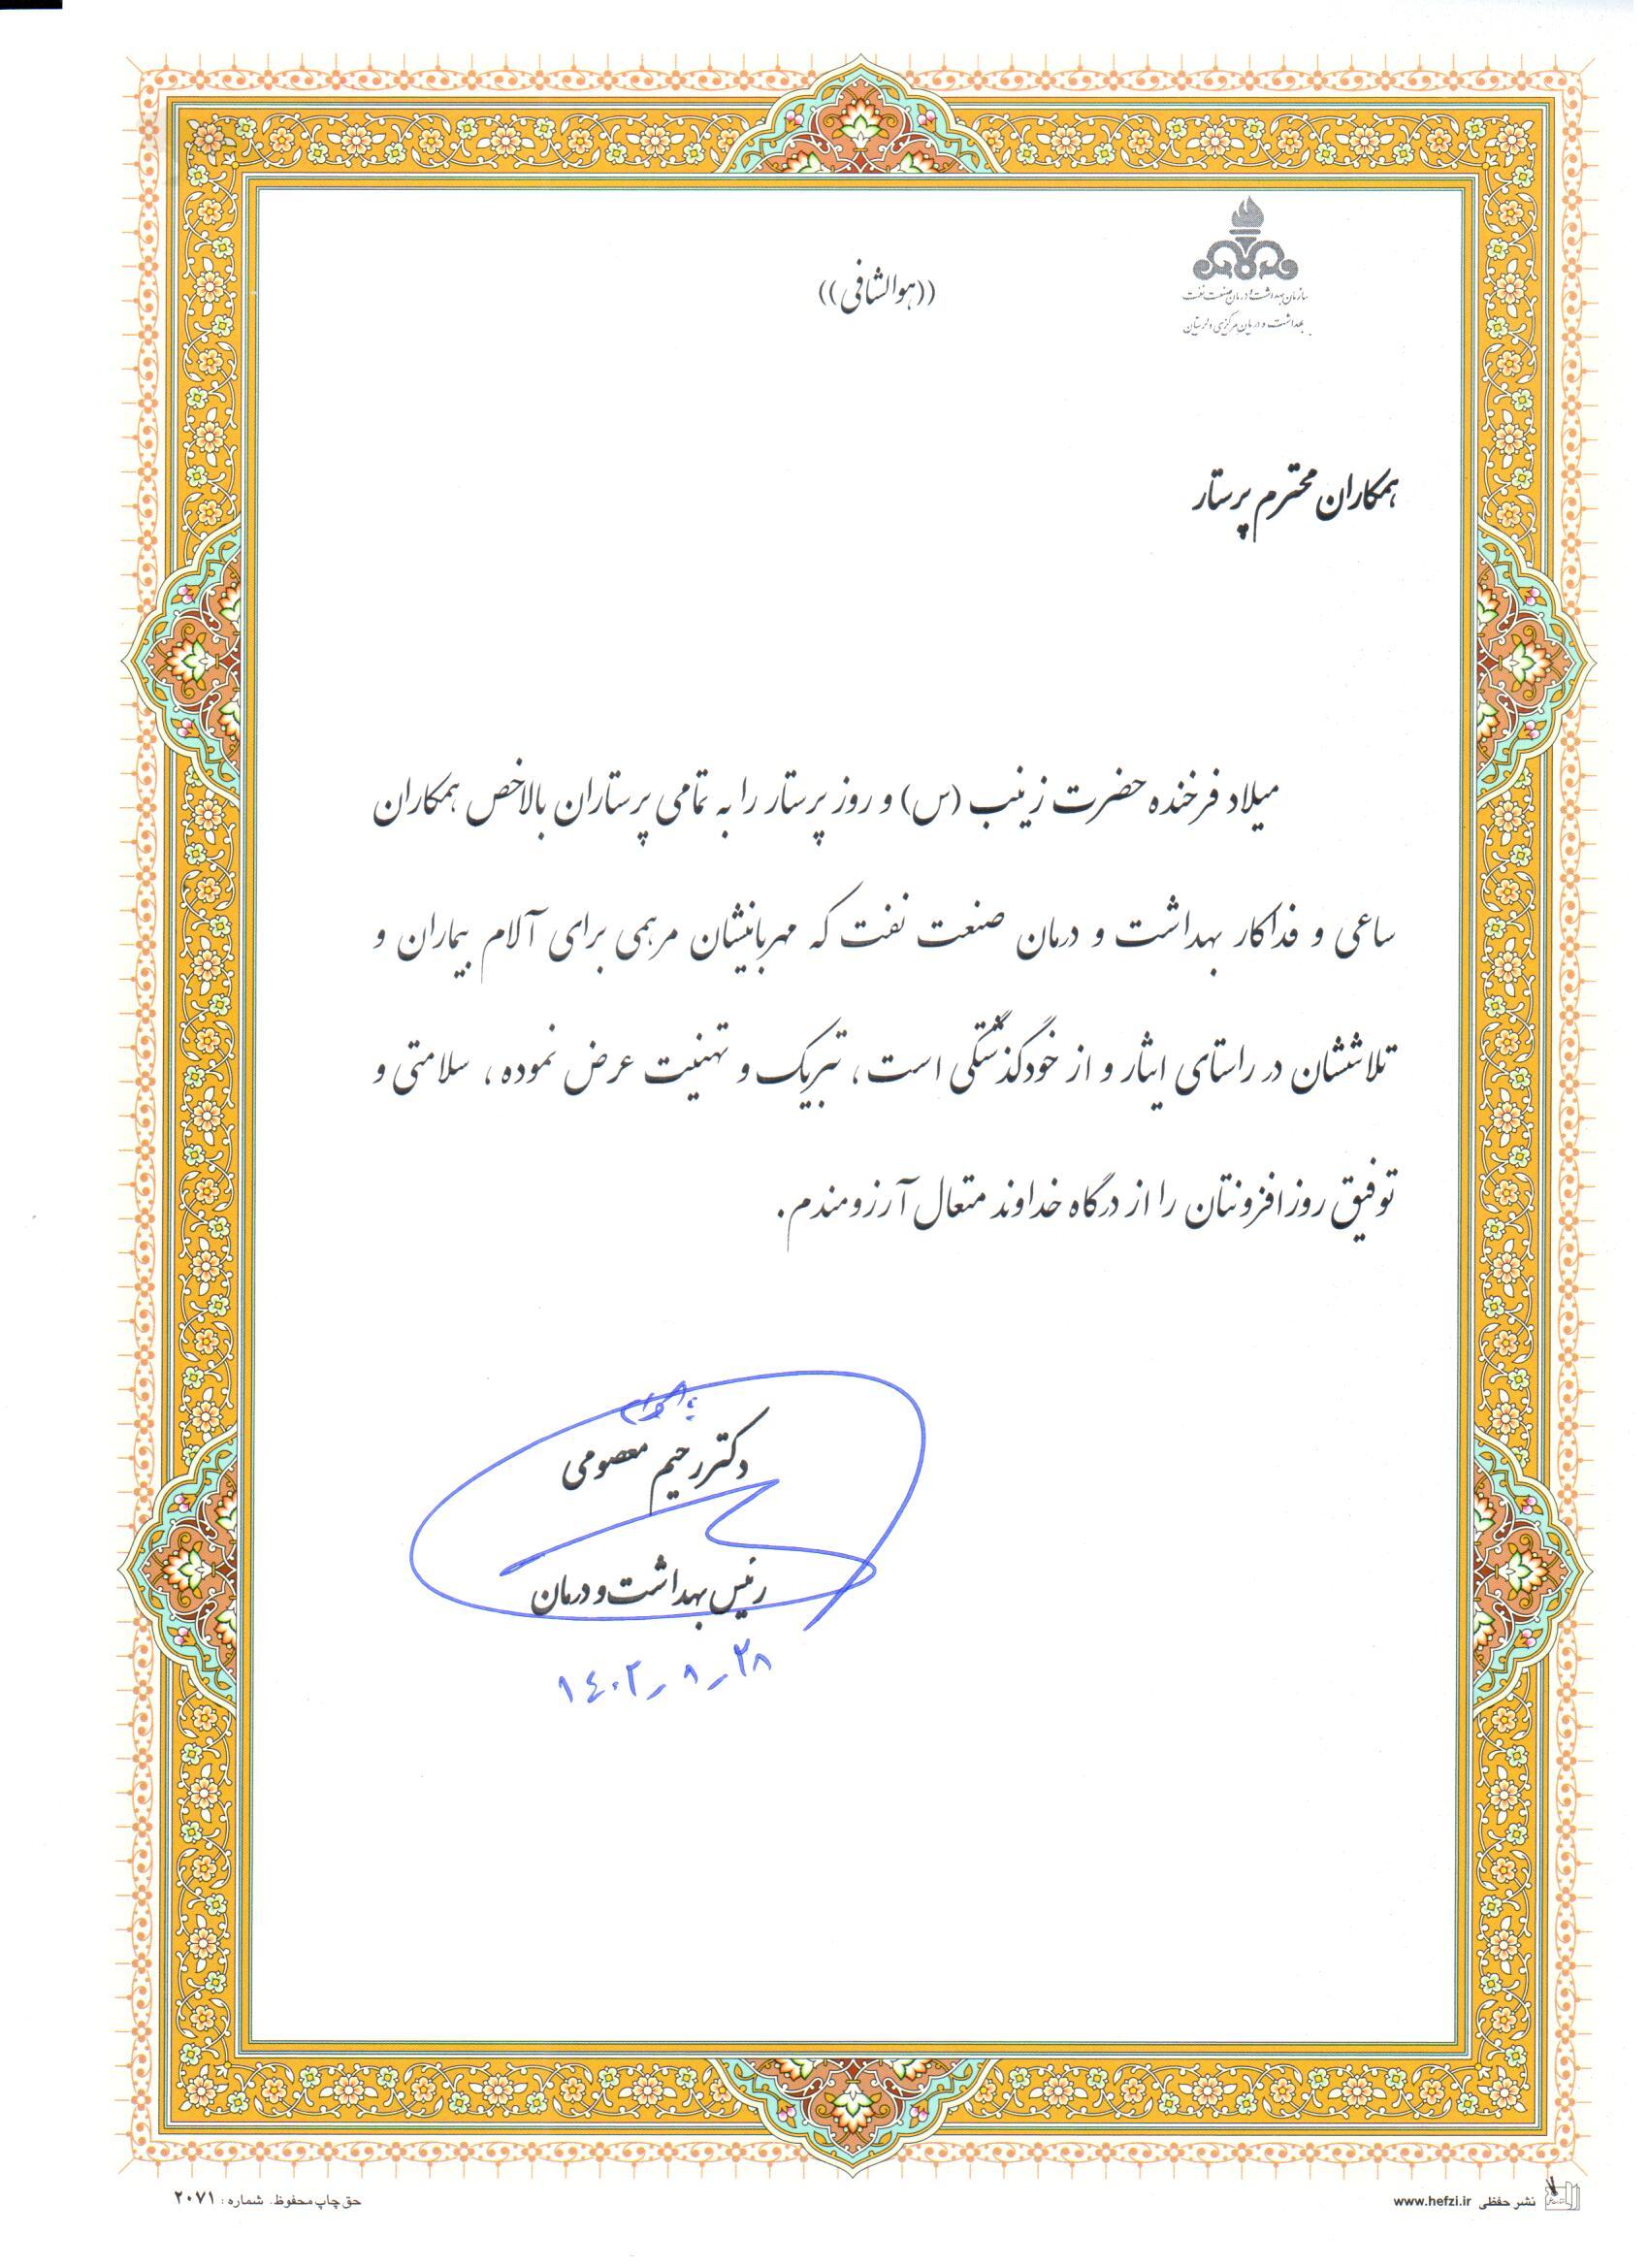 سازمان بهداشت و درمان صنعت نفت
بهداشت و درمان مرکزی و لرستان
((هوالشافی))
همکاران محترم پرستار
میلاد فرخنده حضرت زینب (س) و روز پرستار را به تمامی پرستاران بالاخص همکاران
ساعی و فداکار بهداشت و درمان صنعت نفت که مهربانیشان مرهمی برای آلام بیماران و
تلاششان در راستای ایثار و از خودگذشتگی است، تبریک و تهنیت عرض نموده، سلامتی و
توفیق روزافزونتان را از درگاه خداوند متعال آرزومندم.
با احترام
دکتر رحیم معصومی
رئیس بهداشت و درمان
۱۴۰۲-۸-۲۸
نشر حفظی www.hefzi.ir
حق چاپ محفوظ. شماره: ۲۰۷۱